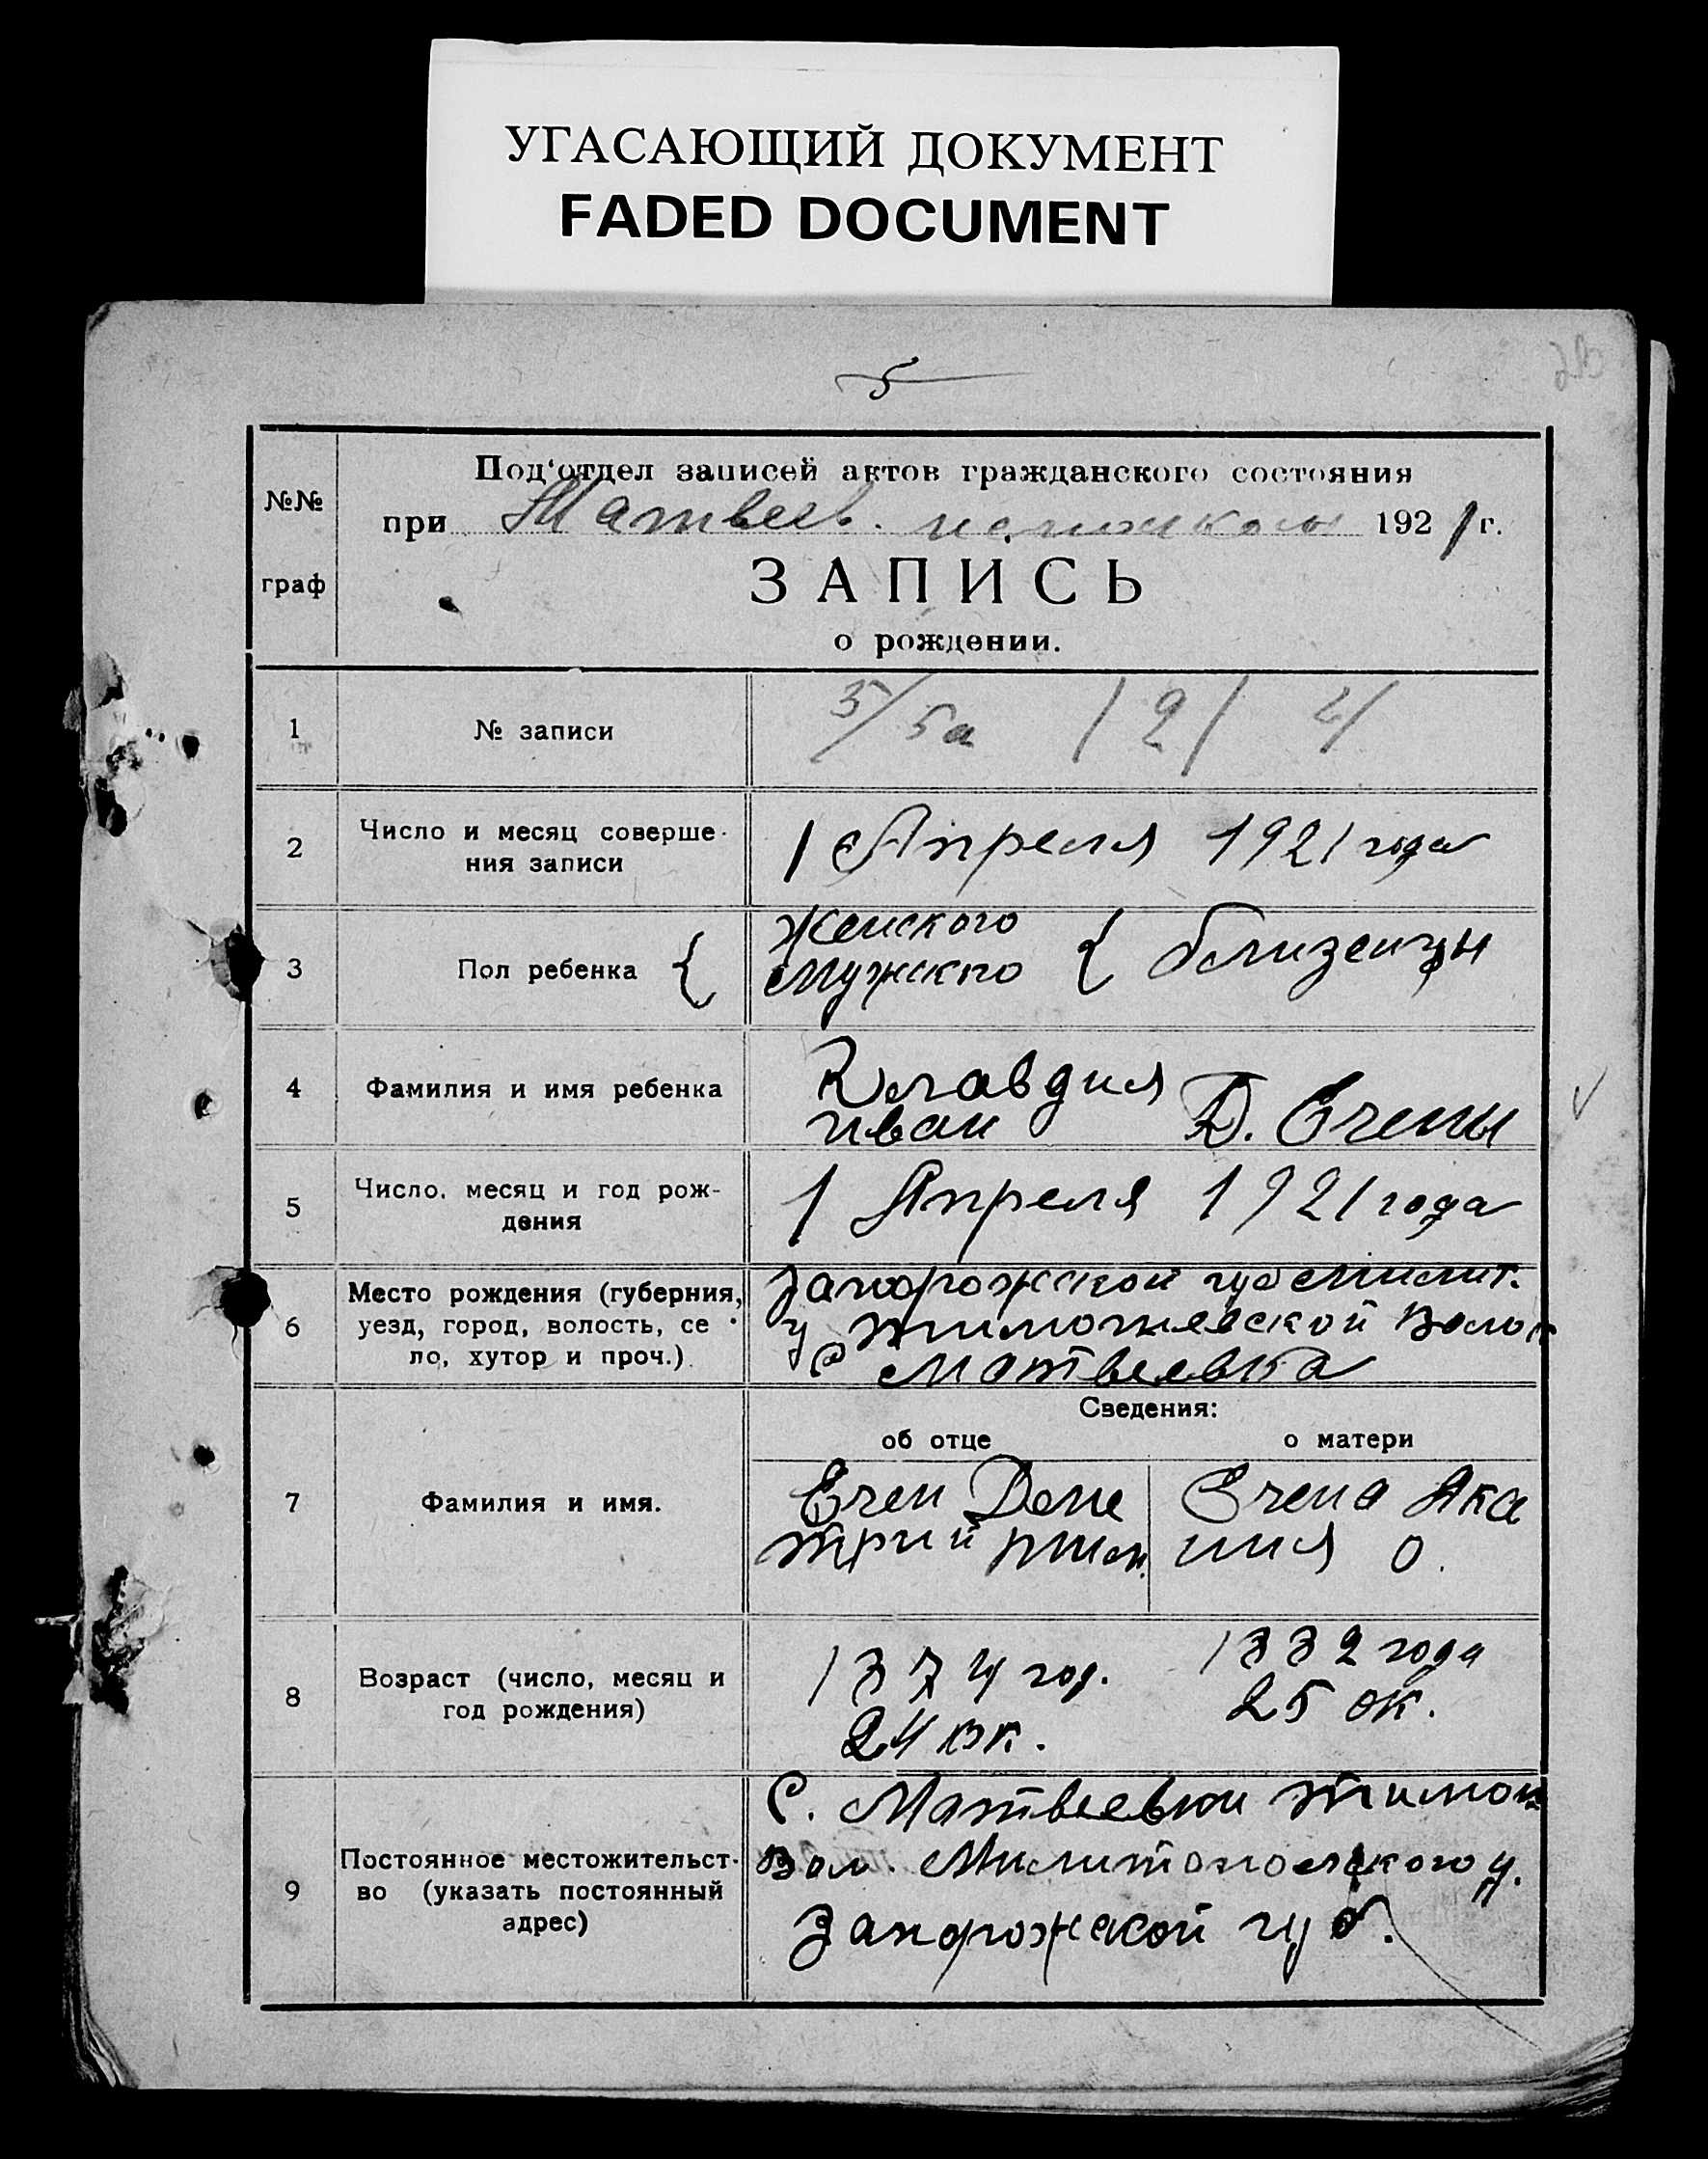 УГАСАЮЩИЙ ДОКУМЕНТ
FADED DOCUMENT
5
№№
граф
Под‘отдел записей актов гражданского состояния
при Матвеев. 1921 г.
ЗАПИСЬ
о рождении.
1 № записи 5/5а
2 Число и месяц соверше-
ния записи
1 Апреля 1921 года
3 Пол ребенка {
Женского
Мужского { близенцы
4 Фамилия и имя ребенка
Клавдия
иван Д. Егены
5 Число, месяц и год рож-
дения
1 Апреля 1921 года
6 Место рождения (губерния,
уезд, город, волость, се
ло, хутор и проч.)
Запорожской губ Милит.
у Тимошевской Волос
с Матвеевка
Сведения:
об отце
о матери
7 Фамилия и имя.
Еген Дме
трий
Егена Ака
1874 год.
1882 года
8 Возраст (число, месяц и
год рождения)
24 ок.
25 ок.
9 Постоянное местожительст-
во (указать постоянный
адрес)
С. Матвеевки Тимош
Вол. Милитопольского у.
Запорожской губ.